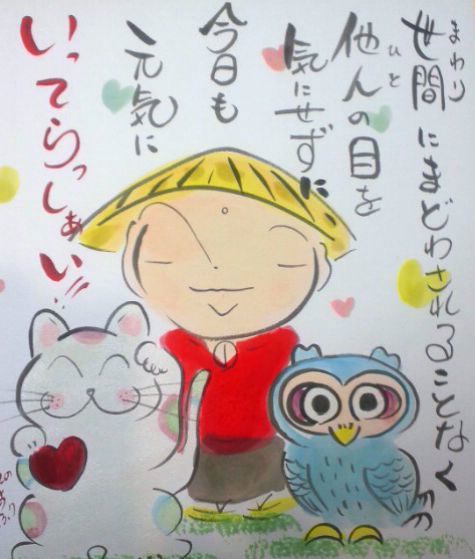 世間にまどわされることなく
まわり
他人の目を
ひと
気にせずに
今日も
元気に
いってらっしぁい!!